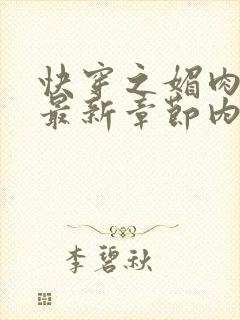 快穿之媚肉
最新章节内
李碧秋